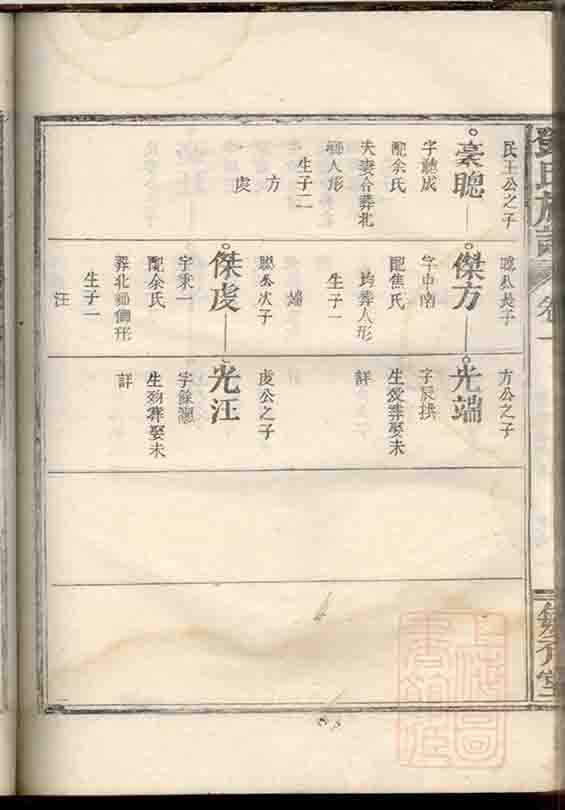 民王公之子
豪聰
字聽成
配余氏
夫妻合葬北
人形
生子二
方
虔
聰公長子
傑方
字中南
配焦氏
均葬人形
生子一
端
聰公次子
傑虔
字秉一
配余氏
葬北 側形
生子一
汪
方公之子
光端
字辰拱
生歿葬娶未
詳
虔公之子
光汪
字餘
生歿葬娶未
詳
氏族譜
卷一
堂
上海圖
書館藏